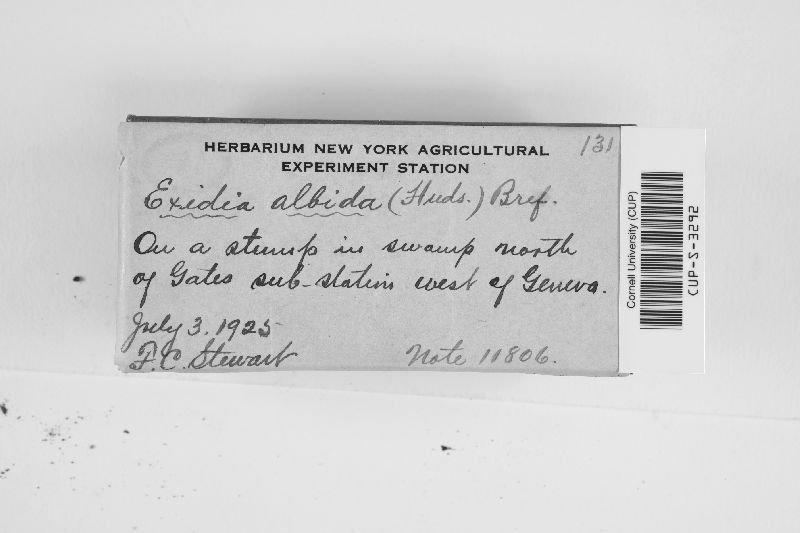 HERBARIUM NEW YORK AGRICULTURAL
EXPERIMENT STATION
131
Exidia albida (Huds.) Bref.
On a stump in swamp north
of Gates sub-station west of Geneva.
July 3. 1925
F.C. Stewart
Note 11806.
Cornell University (CUP)
CUP-S-3292